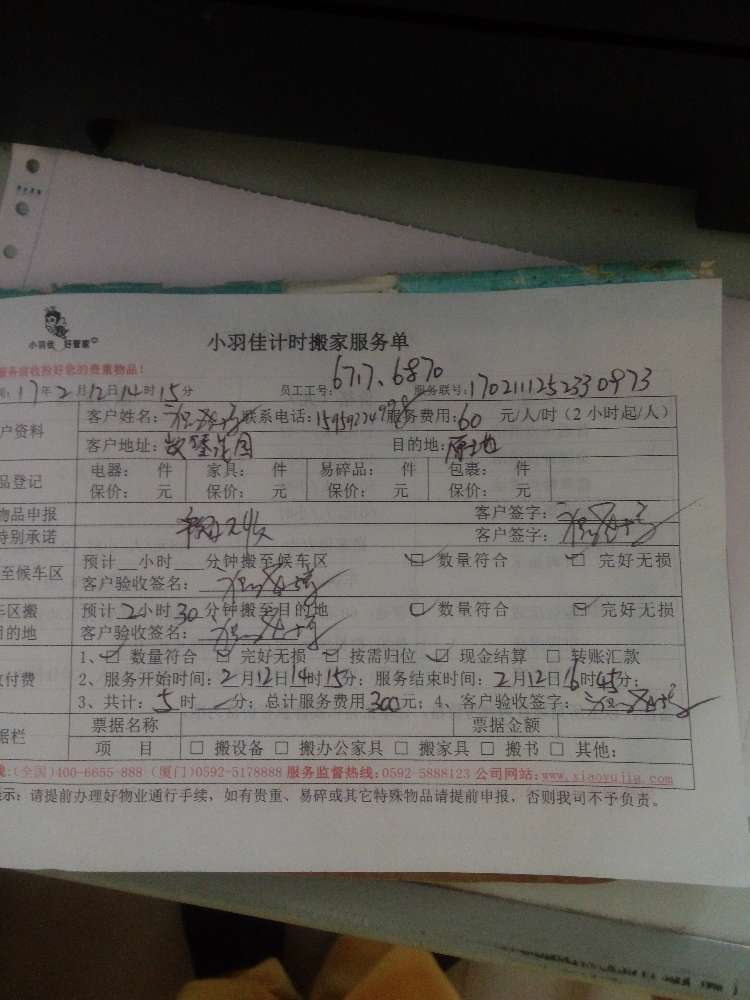 小羽佳 好管家
小羽佳计时搬家服务单
服务前收拾好您的贵重物品!
17年2月12日14时15分 员工工号:6717、6870 服务联号:170211125233 0973
户资料 客户姓名: 联系电话: 服务费用:60元/人/时(2小时起/人)
客户地址: 目的地:原地
品登记 电器: 件 家具: 件 易碎品: 件 包裹: 件
保价: 元 保价: 元 保价: 元 保价: 元
物品申报 客户签字:
特别承诺 客户签字:
至候车区 预计__小时___分钟搬至候车区 □ 数量符合 □ 完好无损
客户验收签名:
车区搬 预计2小时30分钟搬至目的地 □ 数量符合 □ 完好无损
目的地 客户验收签名:
1、□ 数量符合 □ 完好无损 □ 按需归位 □ 现金结算 □ 转账汇款
收付费 2、服务开始时间:2月12日14时15分;服务结束时间:2月12日16时45分;
3、共计:5时 分;总计服务费用300元;4、客户验收签字:
据栏 票据名称 票据金额
项 目 □ 搬设备 □ 搬办公家具 □ 搬家具 □ 搬书 □ 其他:
线:(全国)400-6655-888 (厦门)0592-5178888 服务监督热线:0592-5888123 公司网站:www.xiaoyujia.com
提示:请提前办理好物业通行手续,如有贵重、易碎或其它特殊物品请提前申报,否则我司不予负责。